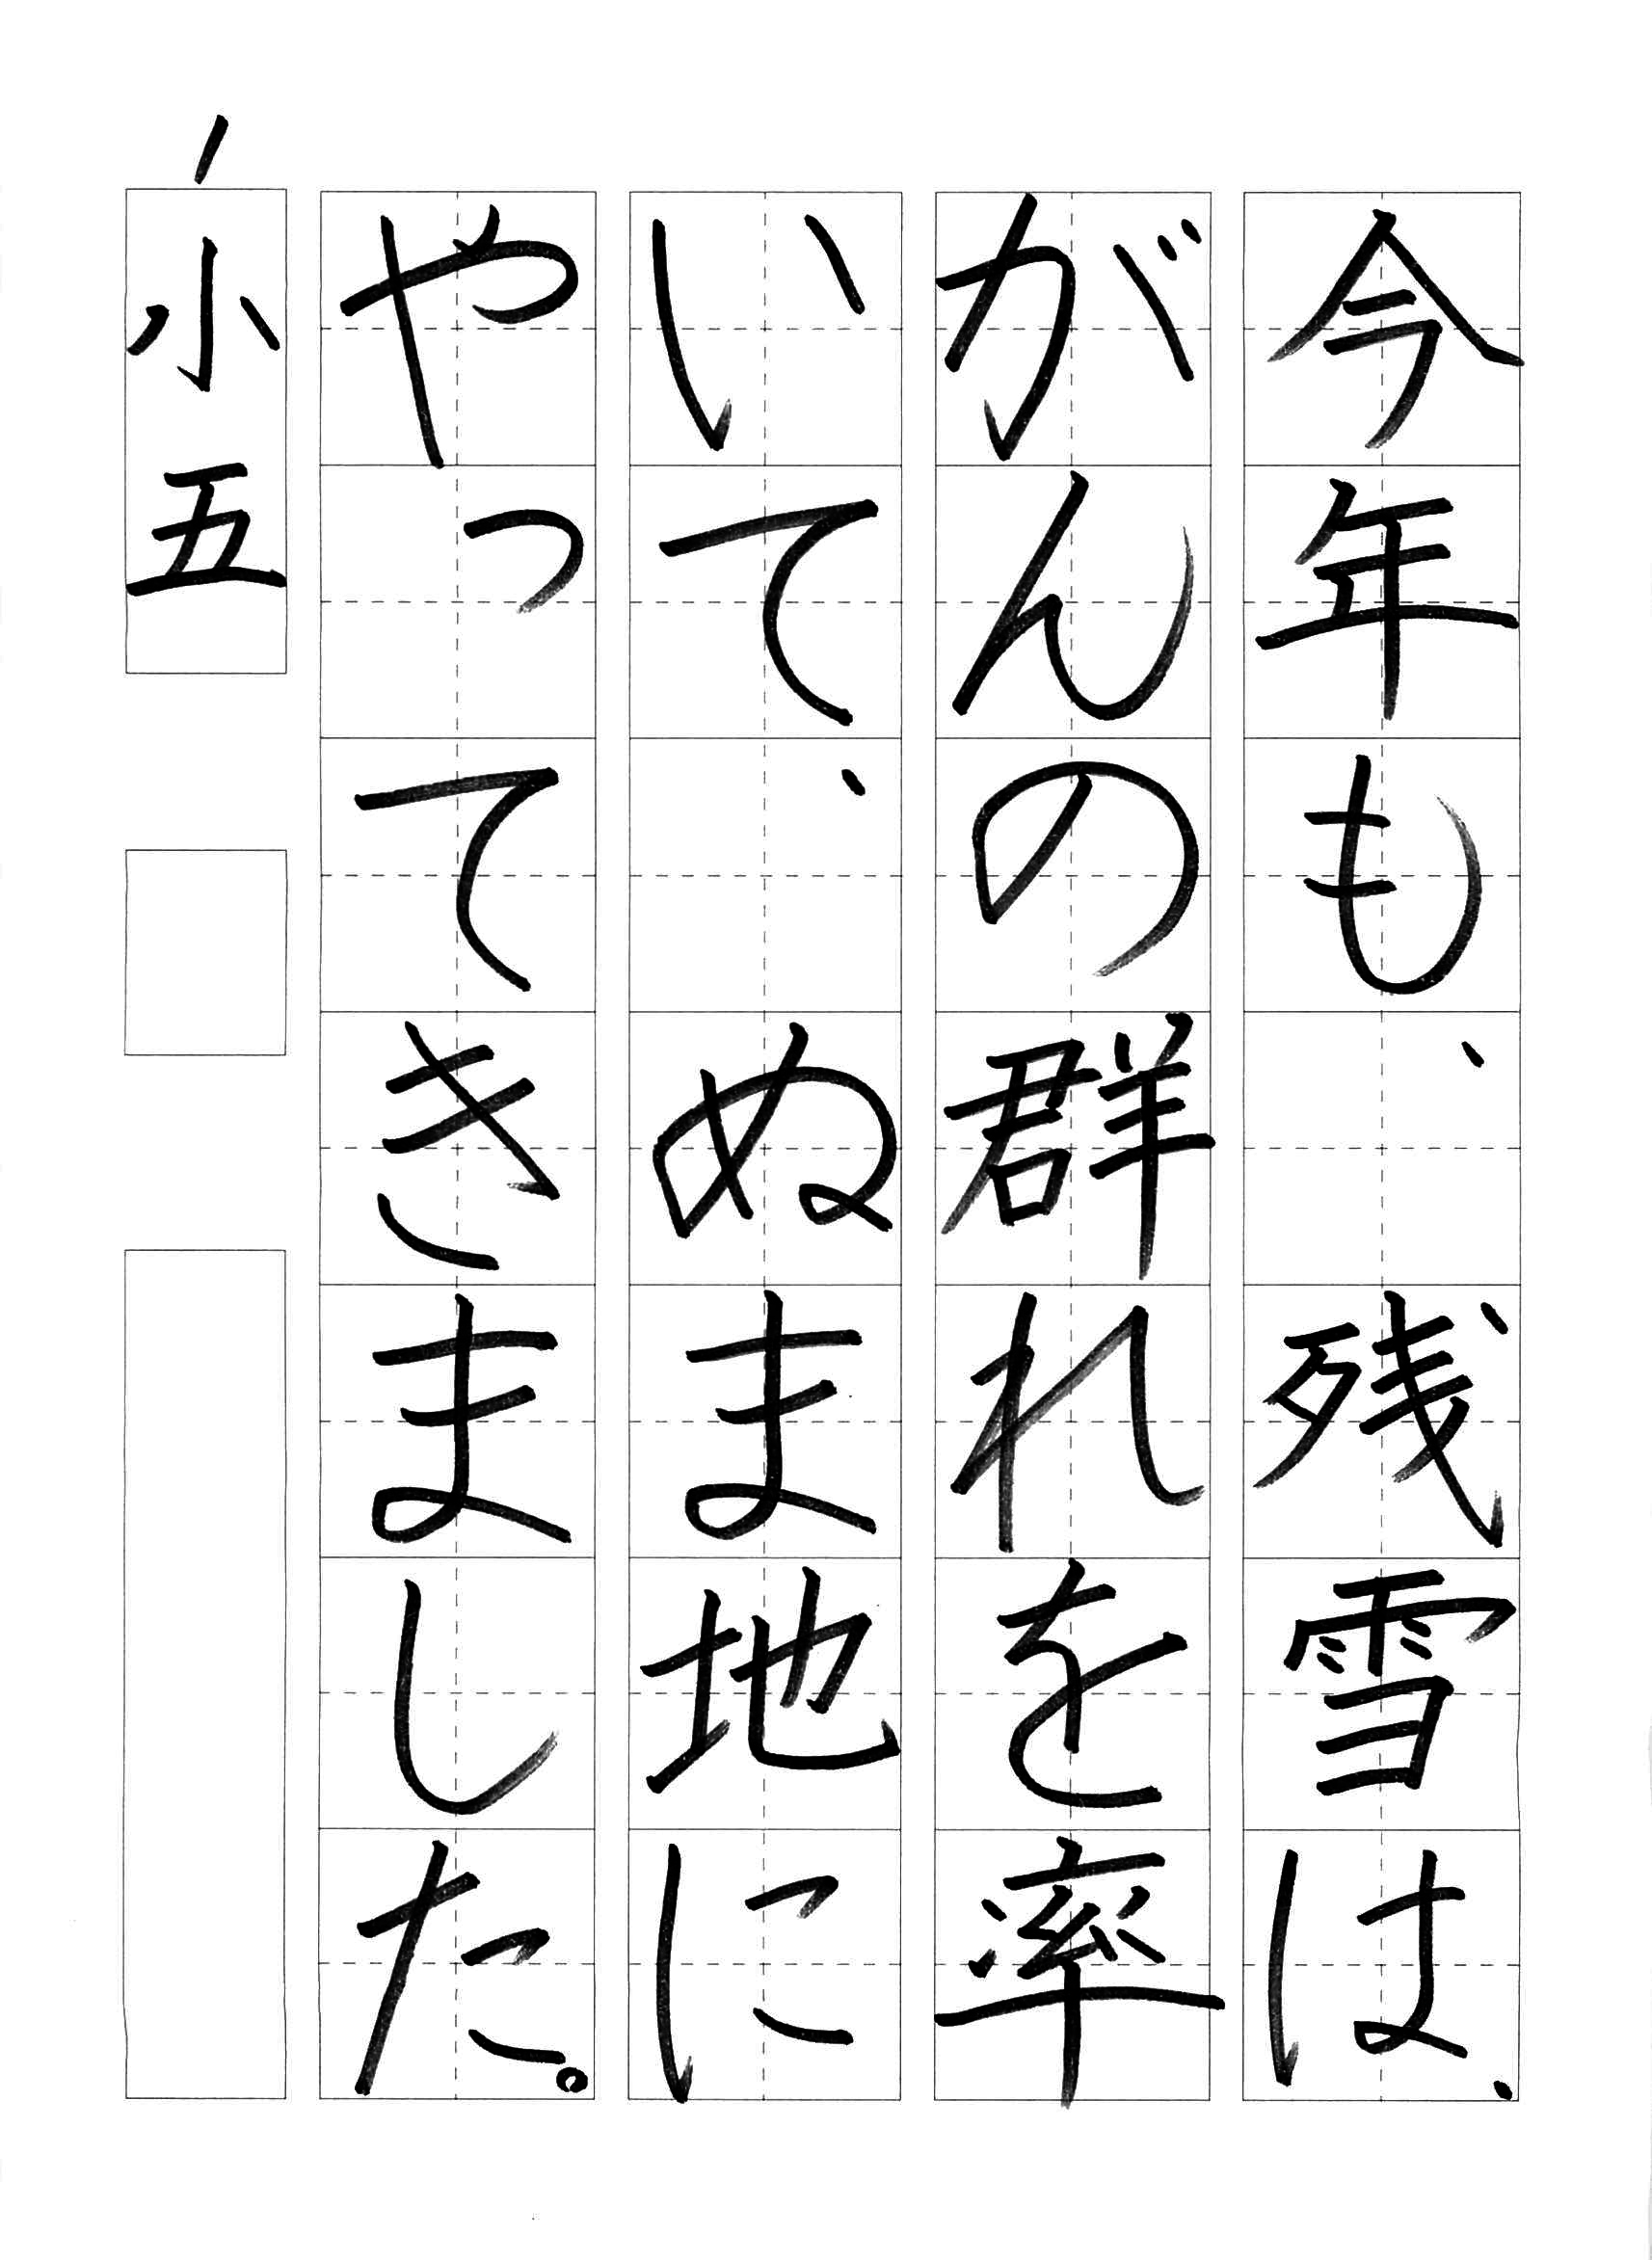 今年も、残雪は、
がんの群れを率
いて、ぬま地に
やってきました。
小五